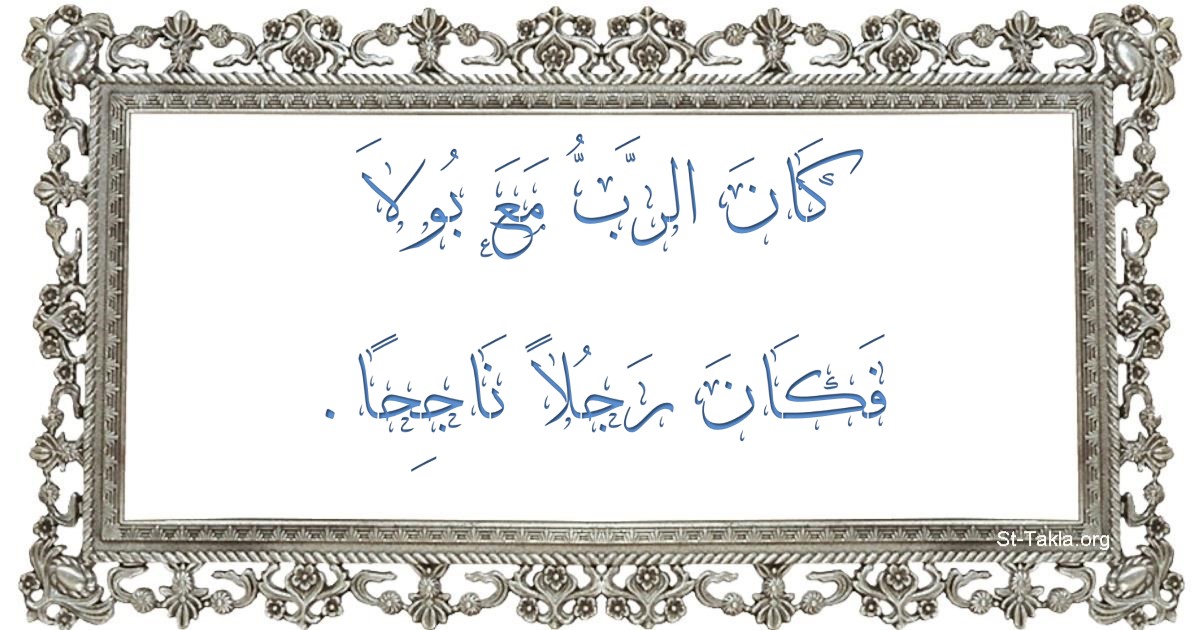 كَانَ الرَّبُّ مَعَ بُولاَ
فَكَانَ رَجُلاً نَاجِحًا .
St-Takla.org